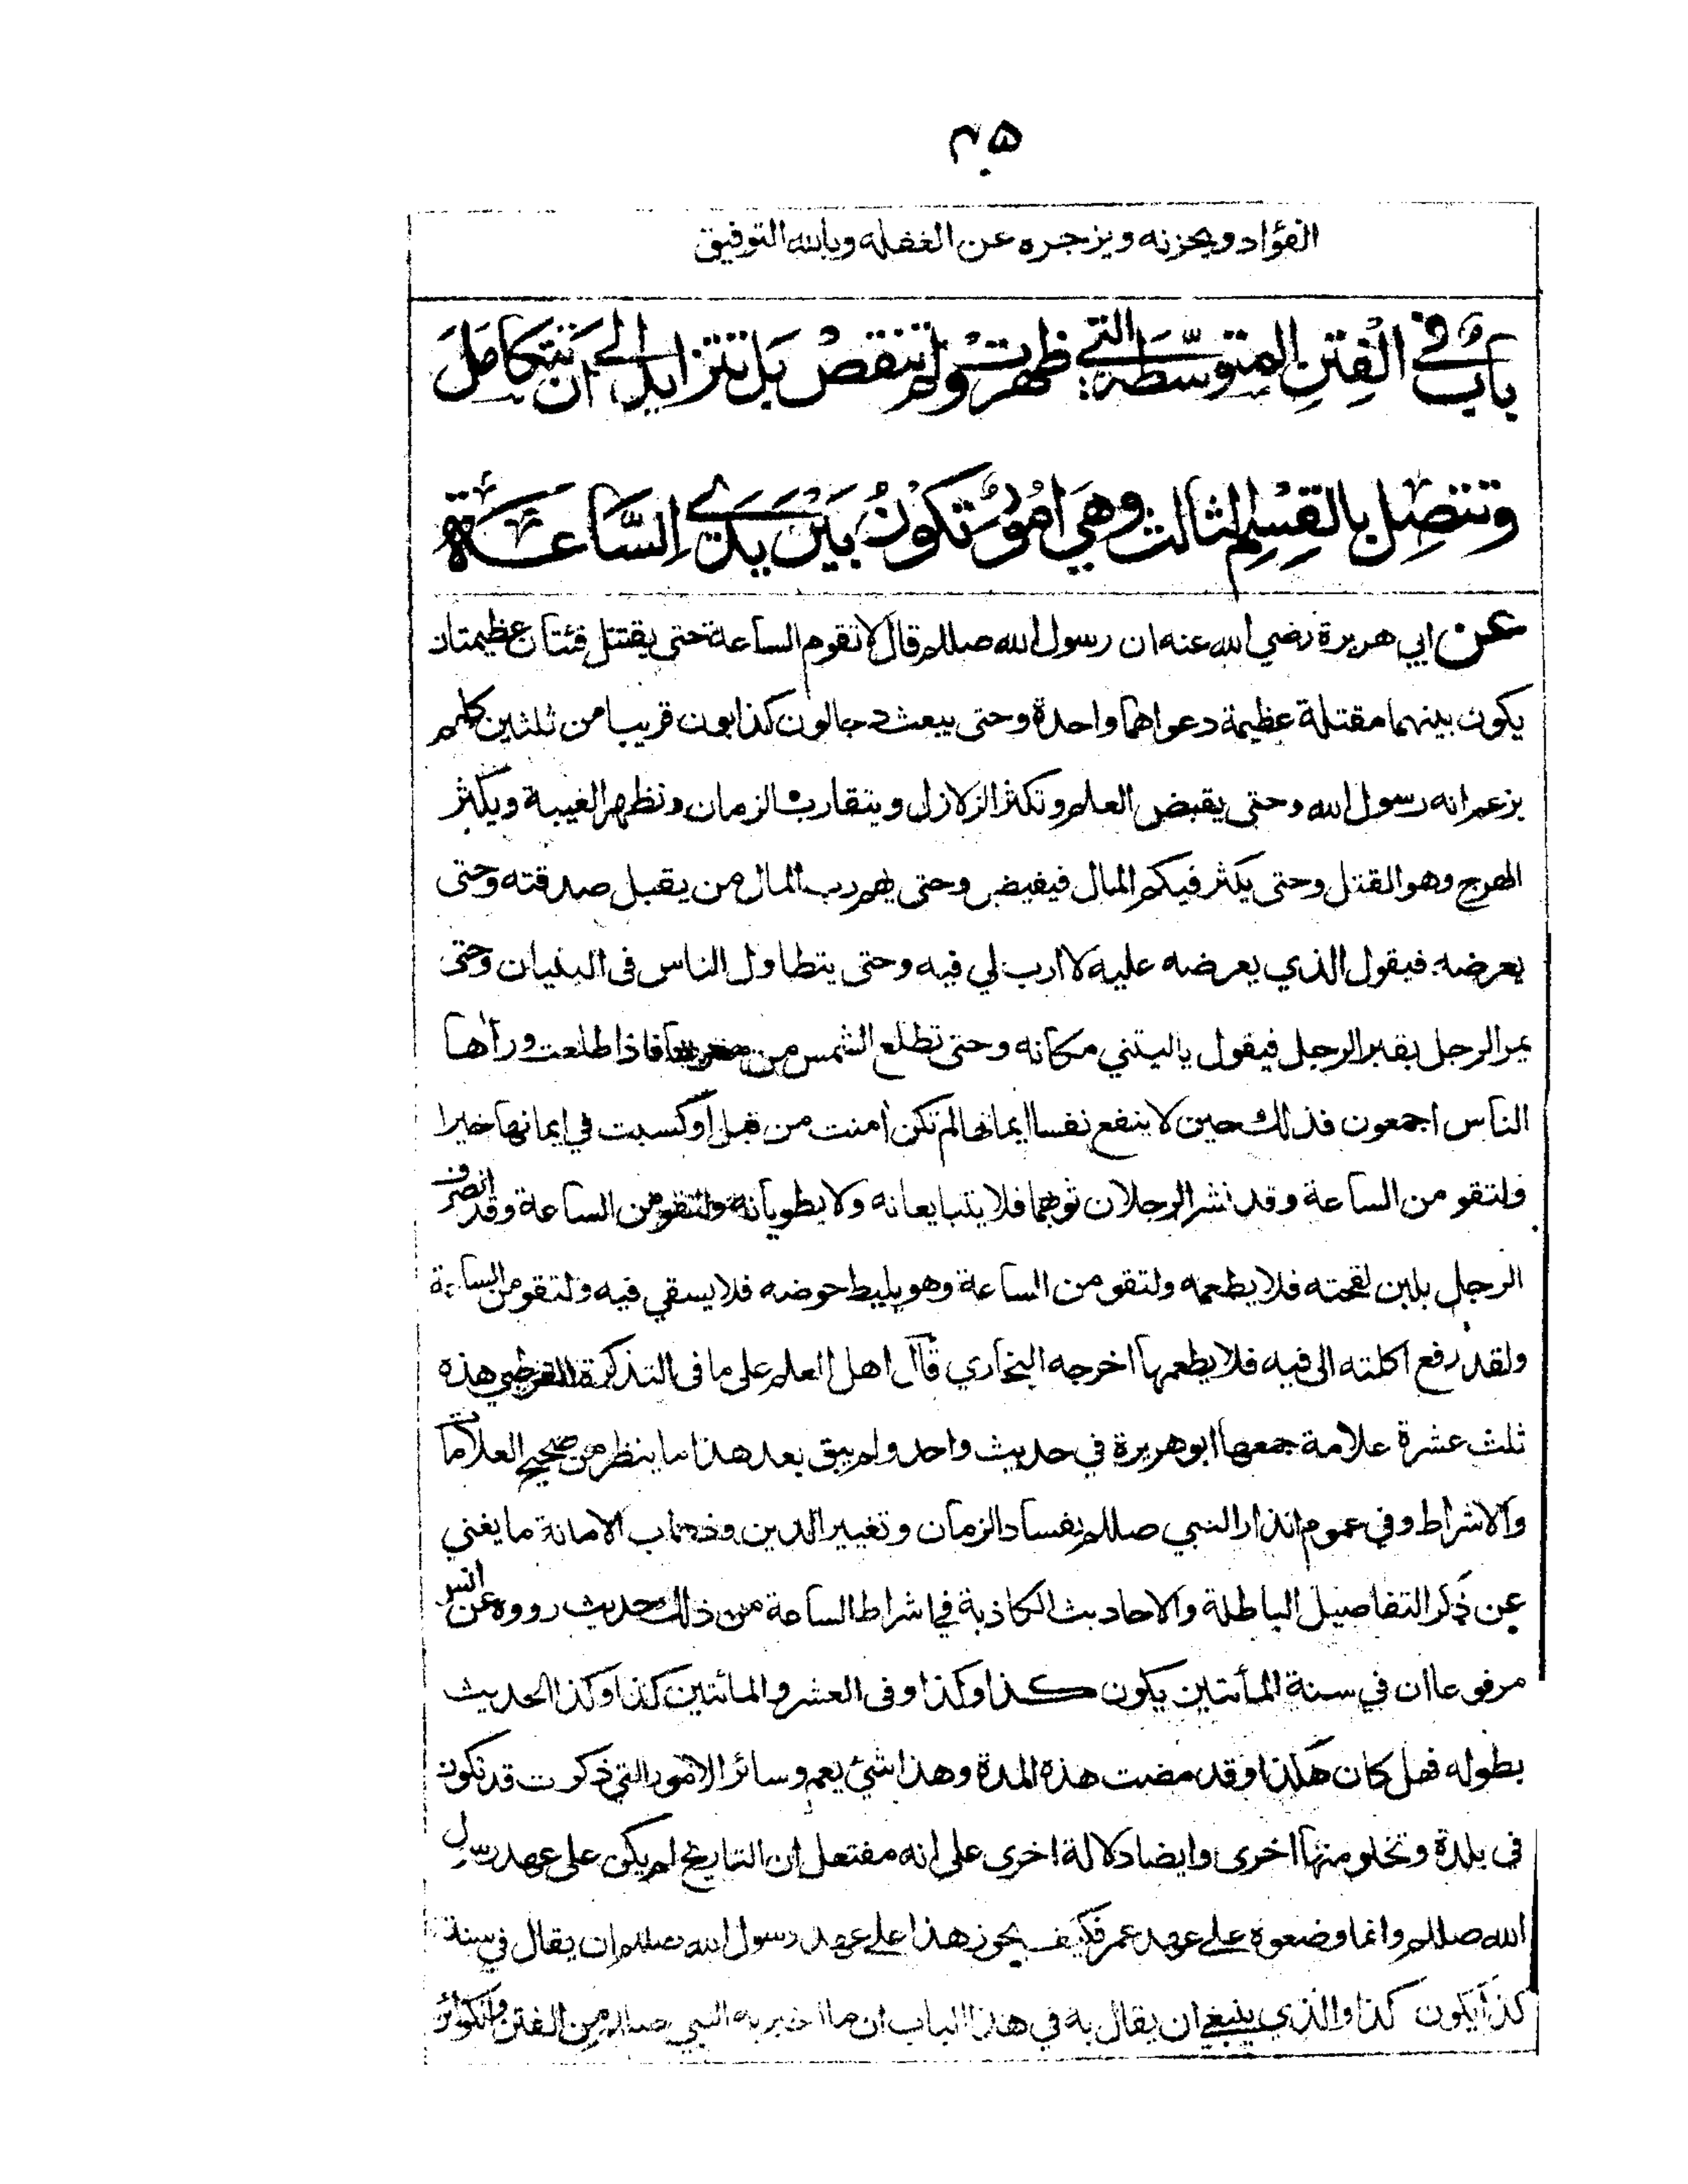 ۵۳
الفؤاد ويحزنه ويزجره عن الغفلة وبالله التوفيق
بابٌ في الْفِتَنِ المتوسّطَة التي ظهرتْ ولم تنقصْ بَل تتزايد الى أن تتكامَلَ
وتتصِل بالقِسْمِ الثالث وهيَ امُورٌ تكونُ بَيْنَ يَدَي السَّاعَة
عن ابي هريرة رضي الله عنه ان رسول الله صللم قال لا تقوم الساعة حتى يقتتل فئتان عظيمتان
يكون بينهما مقتلة عظيمة دعواهما واحدة وحتى يبعث دجالون كذابون قريبا من ثلثين كلهم
يزعم انه رسول الله وحتى يقبض العلم وتكثر الزلازل ويتقارب الزمان وتظهر الغيبة ويكثر
الهرج وهو القتل وحتى يكثر فيكم المال فيفيض وحتى يهم رب المال من يقبل صدقته وحتى
يعرضه فيقول الذي يعرضه عليه لا ارب لي فيه وحتى يتطاول الناس فى البنيان وحتى
يمر الرجل بقبر الرجل فيقول ياليتني مكانه وحتى تطلع الشمس من مغربها فاذا طلعت ورآها
الناس اجمعون فذلك حين لا ينفع نفسا ايمانها لم تكن آمنت من قبل أو كسبت في ايمانها خيرا
ولتقومن الساعة وقد نشر الرجلان ثوبهما فلا يتبايعانه ولا يطويانه ولتقومن الساعة وقد انصرف
الرجل بلبن لقحته فلا يطعمه ولتقومن الساعة وهو يليط حوضه فلا يسقي فيه ولتقومن الساعة
ولقد رفع اكلته الى فيه فلا يطعمها اخرجه البخاري قآل اهل العلم على ما فى التذكرة للقرطبي هذه
ثلث عشرة علامة جمعها ابو هريرة في حديث واحد ولم يبق بعد هذا ما ينظر من صحيح العلامات
والاشراط وفي عموم انذار النبي صللم بفساد الزمان وتغيير الدين وذهاب الامانة ما يغني
عن ذكر التفاصيل الباطلة والاحاديث الكاذبة في اشراط الساعة من ذلك حديث رووه عن انس
مرفوعا ان في سنة المأتين يكون كذا وكذا وفى العشر والمائتين كذا وكذا الحديث
بطوله فهل كان هكذا وقد مضت هذه المدة وهذا شئ يعم وسائر الامور التي ذكرت قد تكون
فى بلدة وتخلو منها اخرى وايضا دلالة اخرى على انه مفتعل ان التاريخ لم يكن على عهد رسول
الله صللم وانما وضعوه على عهد عمر فكيف يجوز هذا على عهد رسول الله صللم ان يقال في سنة
كذا يكون كذا والذي ينبغي ان يقال به في هذا الباب ان ما اخبر به النبي صللم من الفتن والكوائن